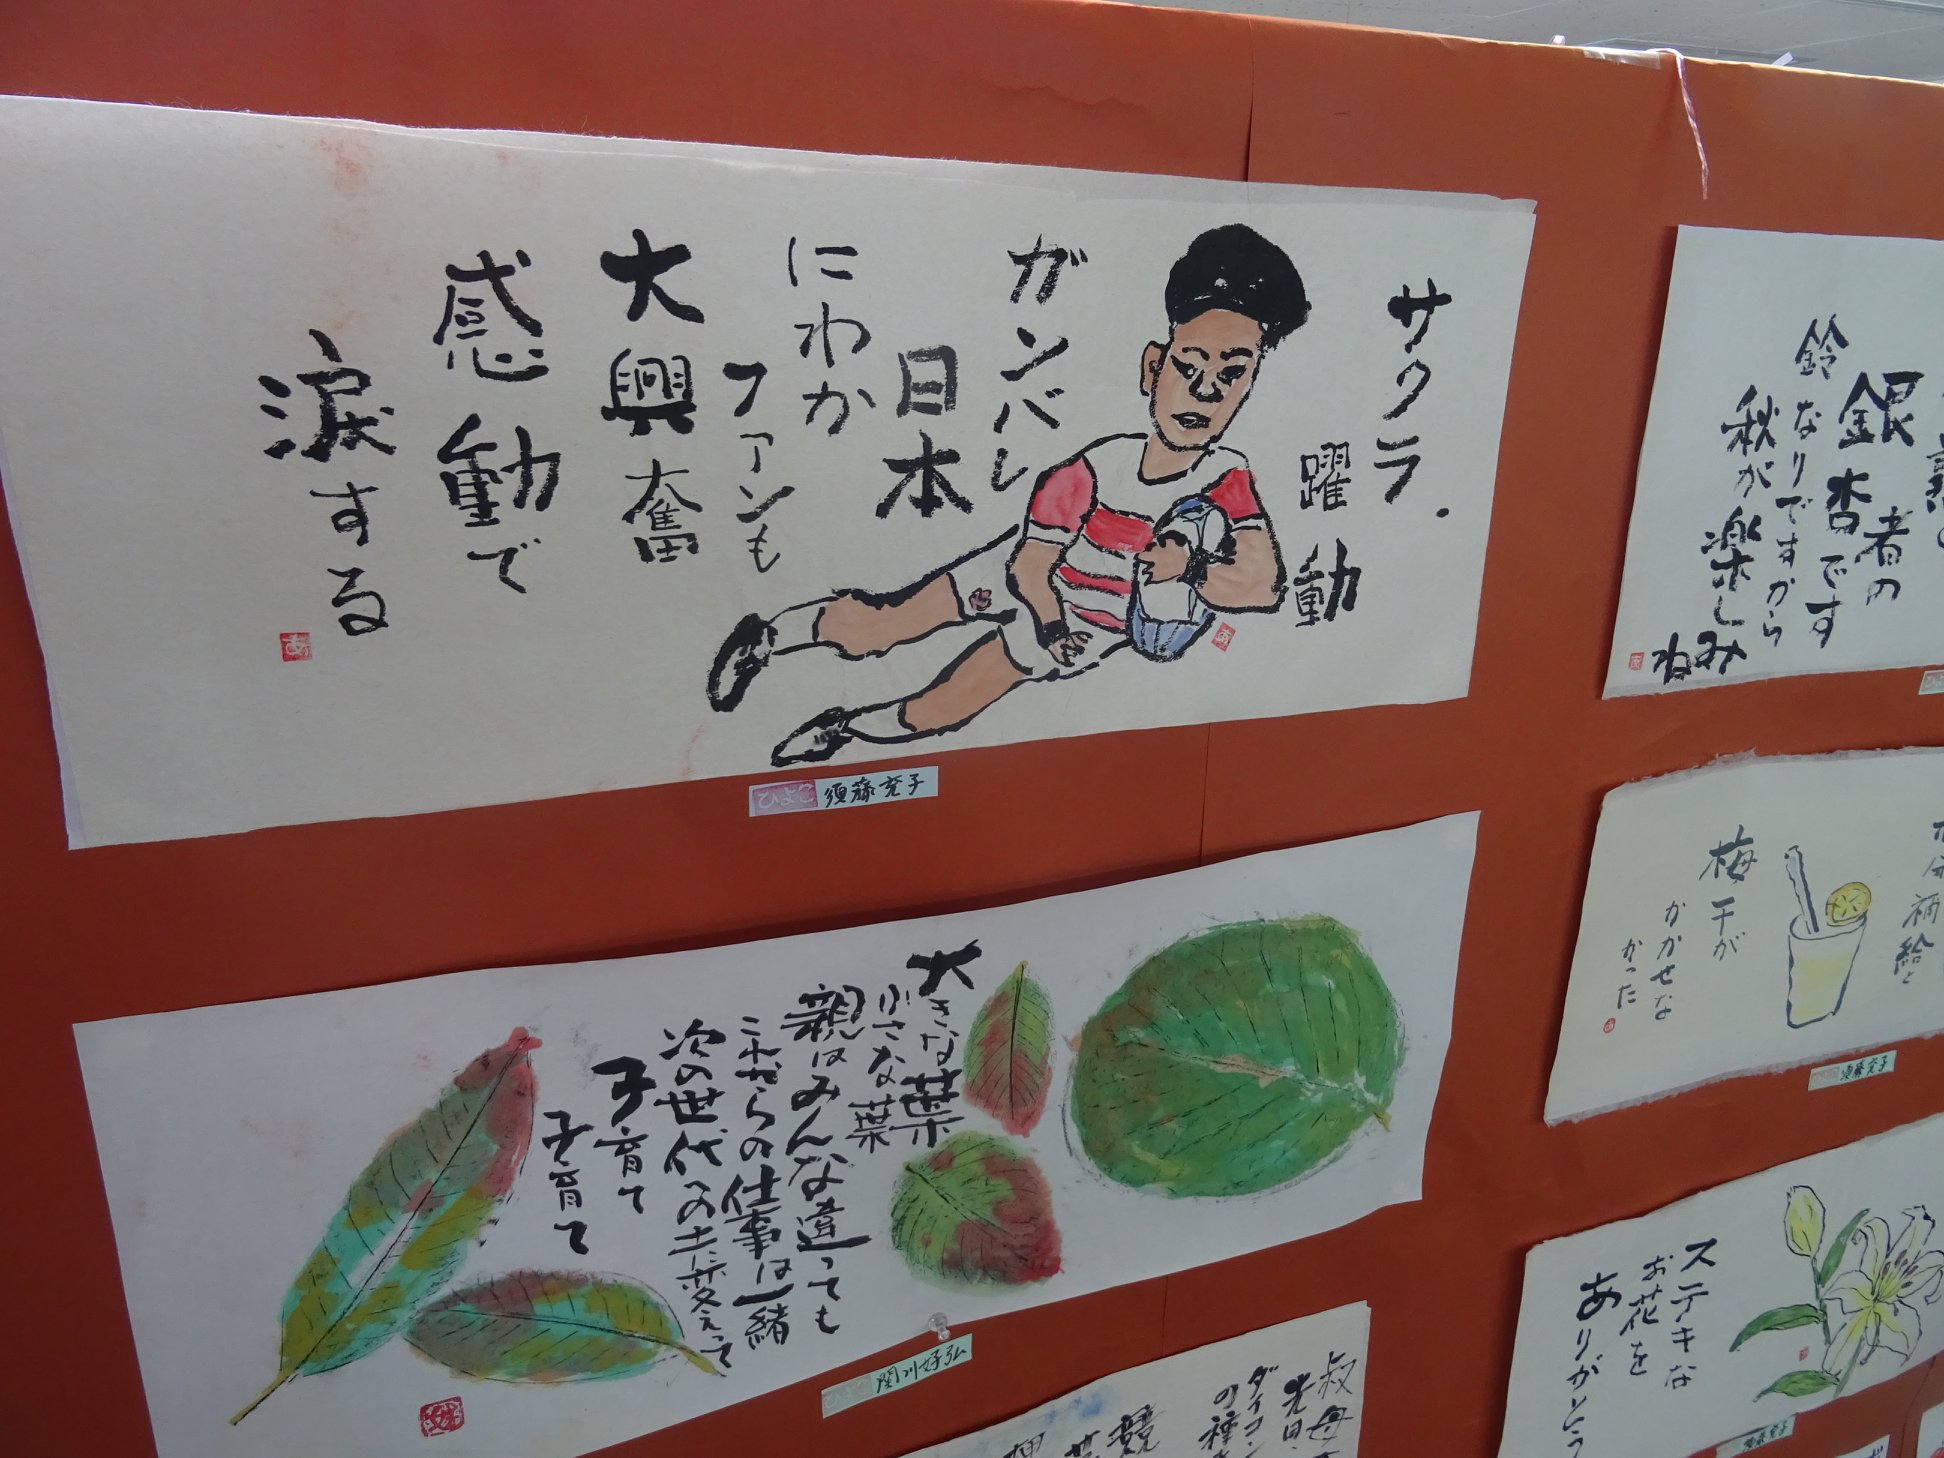 サクラ.
躍動
ガンバレ
日本
にわか
ファンも
大興奮
感動で
涙する
あ
ひよこ 須藤充子
大きな葉
小さな葉
親はみんな違っても
これからの仕事は一緒
次の世代への土に変えって
子育て
子育て
ひよこ 関川好弘
者の
銀杏です
鈴なりですから
秋が楽しみ
ね
梅干が
かかせな
かった
須藤充子
ステキな
お花を
ありがとう
須藤充子
叔母
先日、
ダイコン
の種